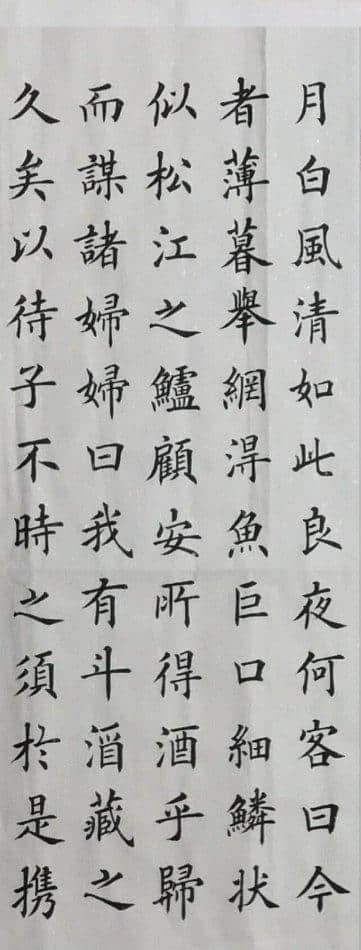 月白風清如此良夜何客曰今
者薄暮舉網淂魚巨口細鱗状
似松江之鱸顧安所得酒乎歸
而謀諸婦婦曰我有斗酒藏之
久矣以待子不時之須於是携